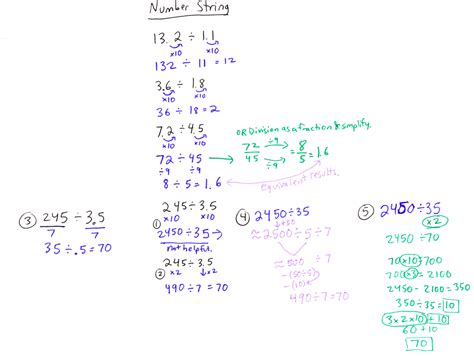 Number String
13.2 ÷ 1.1
x10 x10
132 ÷ 11 = 12
3.6 ÷ 1.8
x10 x10
36 ÷ 18 = 2
7.2 ÷ 4.5
x10 x10
72 ÷ 45
÷9 ÷9
8 ÷ 5 = 1.6
OR Division as a fraction & simplify.
72 ÷9 = 8 = 1.6
45 ÷9 5
Equivalent results.
③ 245 ÷ 3.5
7 7
35 ÷ .5 = 70
245 ÷ 3.5
① x10 x10
2450 ÷ 35 →
not helpful.
245 ÷ 3.5
② x2 x2
490 ÷ 7 = 70
④ 2450 ÷ 35
≈ 2500 ÷ 5 ÷ 7
≈ 500 ÷ 7
490 ÷ 7 = 70
⑤ 2450 ÷ 35
x2
2450 ÷ 70
70 x10 = 700
700 x3 = 2100
2450 - 2100 = 350
350 ÷ 35 = 10
3 x 2 x 10 + 10
60 + 10
70